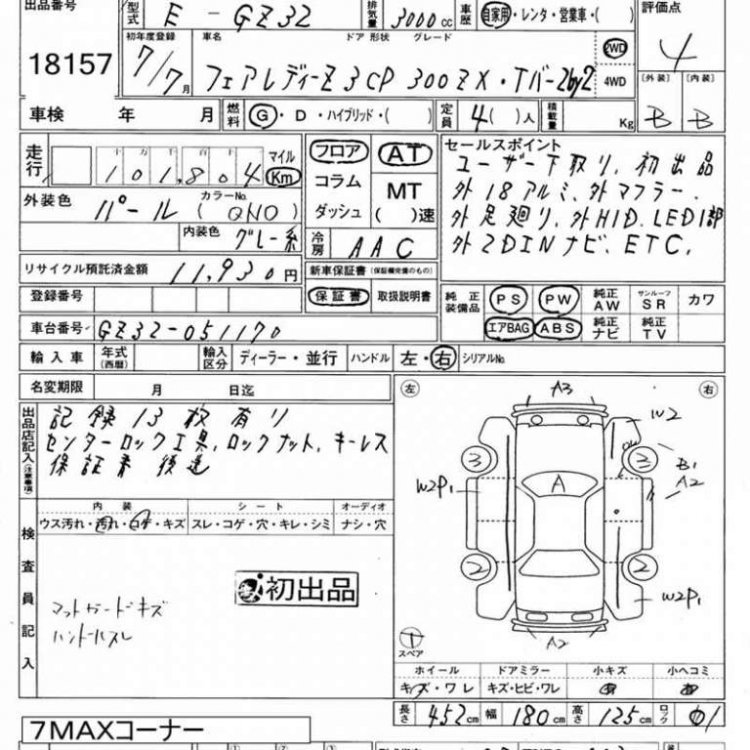 出品番号 18157
型式 E - GZ32 排気量 3000cc 車歴 自家用・レンタ・営業車・( ) 評価点 4
初年度登録 7/7月 車名 ドア 形状 グレード
フェアレディーZ 3CP 300ZX・Tバー2by2 2WD 4WD
[外装] B [内装] B
車検 年 月 燃料 G・D・ハイブリッド・( ) 定員 4( )人 積載量 Kg
走行 十 万 千 百 十 101,804 マイル Km
フロア コラム ダッシュ AT MT ( )速
外装色 パール カラーNo. (QN0)
内装色 グレー系
冷房 AAC
セールスポイント
ユーザー下取り、初出品
外18アルミ、外マフラー、
外足廻り、外HID、LED1部
外2DINナビ、ETC、
リサイクル預託済金額 11,930円 新車保証書(保証継続のもの)
登録番号 保証書 取扱説明書
純正装備品 PS PW 純正AW サンルーフSR カワ
エアBAG ABS 純正ナビ 純正TV
車台番号 GZ32-051170
輸入車 年式(西暦) 輸入区分 ディーラー・並行 ハンドル 左・右 シリアルNo.
名変期限 月 日迄
出品店記入(注意事項)
記録13枚有り
センターロック工具、ロックナット、キーレス
保証書後送
左 右
A3
W2
3 3
B1
A2
W2P1
A
2 2
W2P1
A2
T
スペア
検査員記入
内装 シート オーディオ
ウス汚れ・汚れ・コゲ・キズ スレ・コゲ・穴・キレ・シミ ナシ・穴
初出品
マットガードキズ
ハンドルスレ
ホイール ドアミラー 小キズ 小ヘコミ
キズ・ワレ キズ・ヒビ・ワレ
長さ 452cm 幅 180cm 高さ 125cm ロック
7MAXコーナー